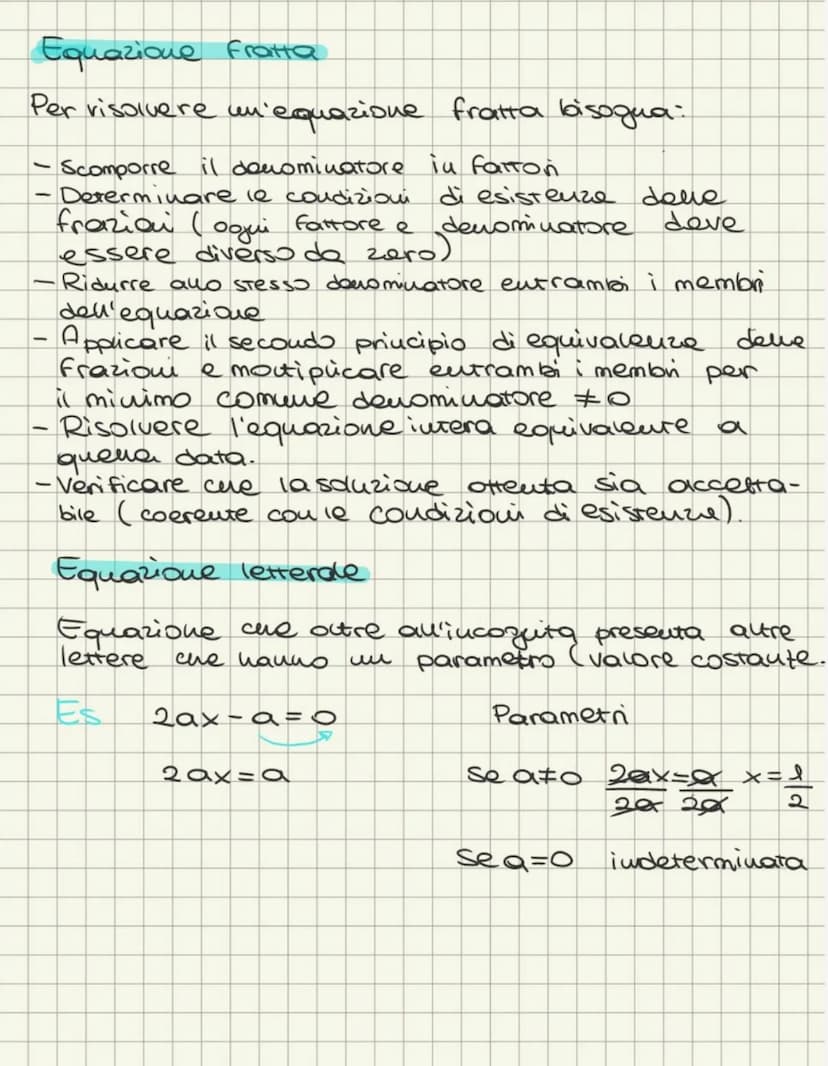 Equazione fratta
Per risolvere un'equazione fratta bisogna:
- Scomporre il denominatore in fattori
- Determinare le condizioni di esistenza delle
frazioni (ogni fattore e denominatore deve
essere diverso da zero)
- Ridurre allo stesso denominatore entrambi i membri
dell'equazione
- Applicare il secondo principio di equivalenza delle
frazioni e moltiplicare entrambi i membri per
il minimo comune denominatore ≠0
- Risolvere l'equazione intera equivalente a
quella data.
- Verificare che la soluzione ottenuta sia accetta-
bile (coerente con le condizioni di esistenza).
Equazione letterale
Equazione che oltre all'incognita presenta altre
lettere che hanno un parametro (valore costante.
Es 2ax-a=0 Parametri
2ax=a se a≠0 2ax/2a=a/2a x=1/2
se a=0 indeterminata